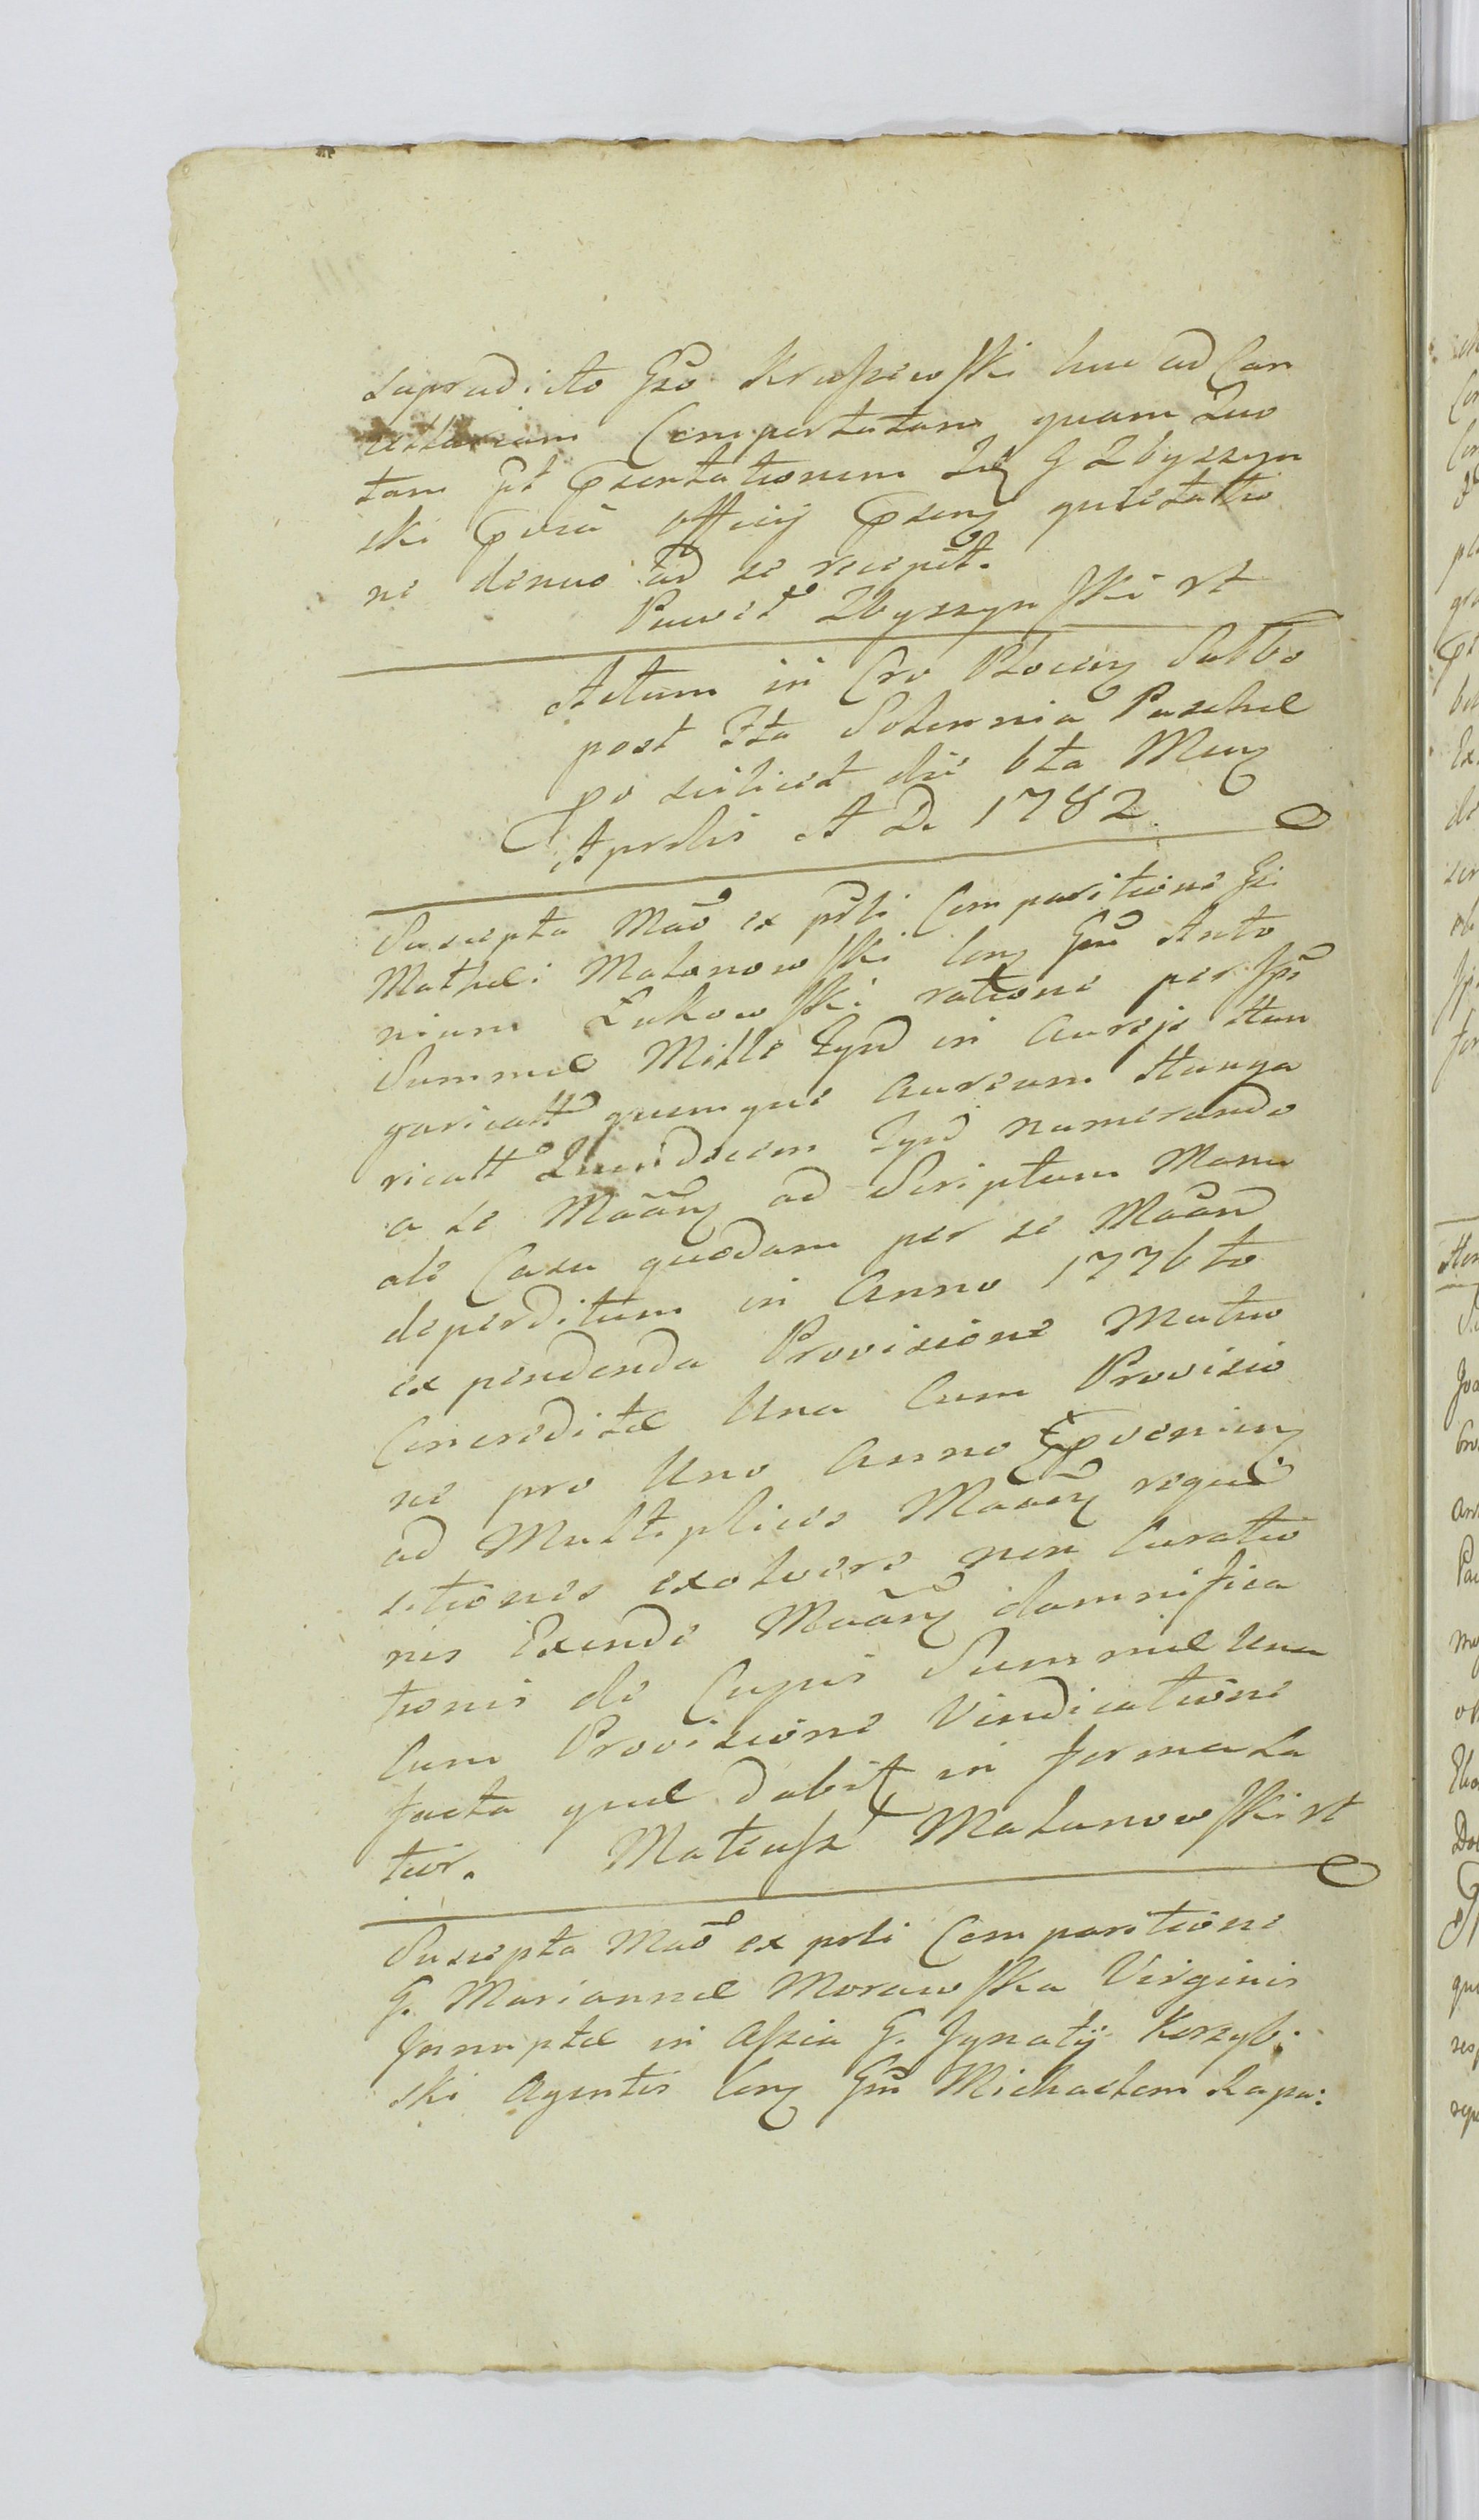 supradicto Gso Kraszewski huc ad Can
cellariam Comportatam quam Quo
tam pt Psentationem Idq G Zbyszyn
ski Psia Officij Psenq quietatio
ne denuo ad se recepit.
Paweł Zbyszynski rt
Actum in Cro Płocenq Sabbo
post Fta Solennia Paschæ
po scilicet die 6ta Menq
Aprilis A D. 1782
Suscepta Mao ex psli Comparitione Gi
Mathæi Małanowski Conq Gm Anto
nium Łukowski ratione per Ipm
Summæ Mille Tynf in Aureis Hun
garicall quemque Aureum Hunga
ricall Quindecem Tynf numerando
a se Maanq ad Scriptum Manu
ale Casu quodam per se Maand
deperditum in Anno 1776to
ex pendenda Provisione Mutuo
Concreditæ Una Cum Provisio
ne pro Uno Anno Pvenienq
ad Multiplices Maanq requi
sitiones exolvere non Curatio
nis Exinde Maanq damnifica
tionis de Cujus Summæ Una
Cum Provisione Vindicatione
facta quæ dabitq in forma La
tior. Mateusz Małanowski rt
Suscepta Mao ex psli Comparitione
G. Mariannæ Morawska Virginis
Innuptæ in Assia G. Ignatij Korzyb:
ski Agentis Conq Gm Michaelem Łapa: